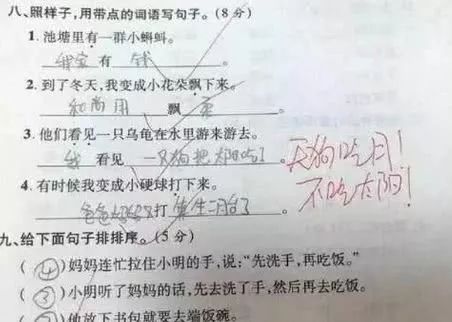 八、照样子,用带点的词语写句子。(8分)
1. 池塘里有一群小蝌蚪。
我家 有 钱 。
2. 到了冬天,我变成小花朵飘下来。
和尚用 飘 柔 。
3. 他们看见一只乌龟在水里游来游去。
我 看见 一只狗把太阳吃了 。
天狗吃月!
不吃太阳!
4. 有时候我变成小硬球打下来。
爸爸 打 第生二月台了 。
九、给下面句子排排序。(5分)
(4)妈妈连忙拉住小明的手,说:“先洗手,再吃饭。”
(3)小明听了妈妈的话,先去洗了手,然后再去吃饭。
他放下书包就要去端饭碗。